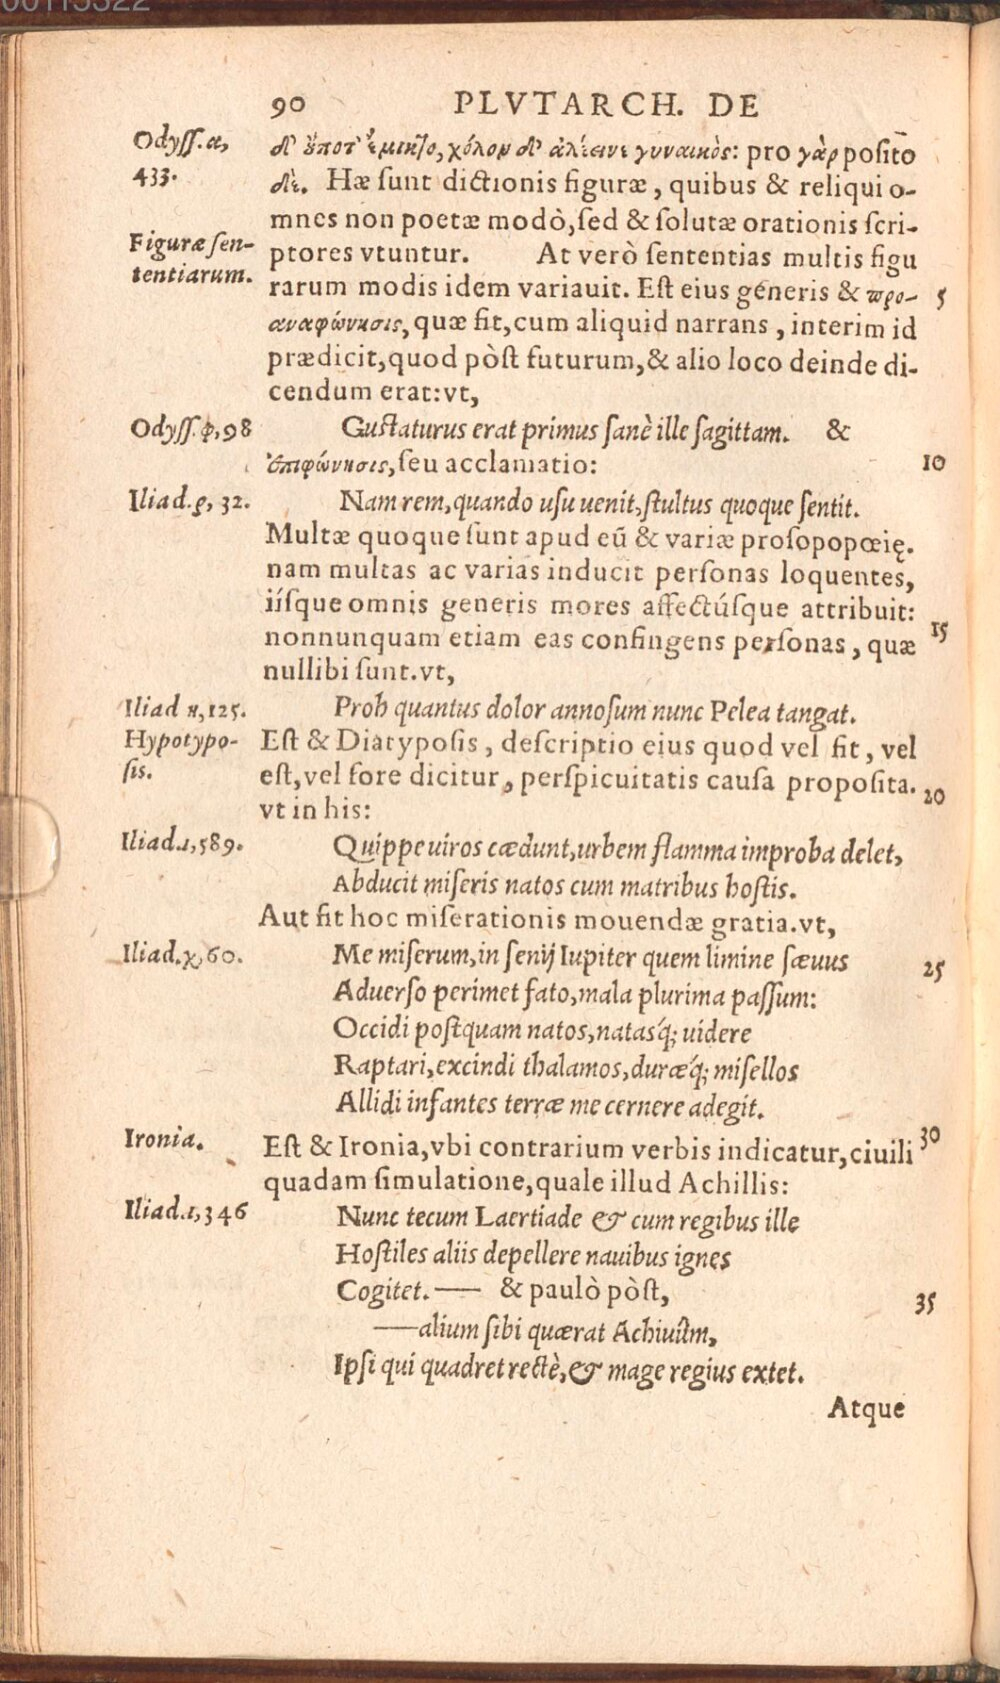 00115322
90 PLVTARCH. DE
Odyss.α,
433.
δ' οὔποτ' ἔμικτο, χόλον δ' ἀλέεινε γυναικὸς: pro γὰρ posito
δέ. Hæ sunt dictionis figuræ, quibus & reliqui o-
mnes non poetæ modò, sed & solutæ orationis scri-
Figuræ sen-
tentiarum.
ptores vtuntur. At verò sententias multis figu
rarum modis idem variauit. Est eius generis & προ- 5
αναφώνησις, quæ fit, cum aliquid narrans, interim id
prædicit, quod pòst futurum, & alio loco deinde di-
cendum erat: vt,
Odyss.φ,98
Gustaturus erat primus sanè ille sagittam. &
ἐπιφώνησις, seu acclamatio: 10
Iliad.ρ, 32.
Nam rem, quando usu uenit, stultus quoque sentit.
Multæ quoque sunt apud eũ & variæ prosopopœię.
nam multas ac varias inducit personas loquentes,
iísque omnis generis mores affectúsque attribuit:
nonnunquam etiam eas confingens personas, quæ 15
nullibi sunt. vt,
Iliad η,125.
Proh quantus dolor annosum nunc Pelea tangat.
Hypotypo-
sis.
Est & Diatyposis, descriptio eius quod vel fit, vel
est, vel fore dicitur, perspicuitatis causa proposita. 20
vt in his:
Iliad.ι,589.
Quippe uiros cædunt, urbem flamma improba delet,
Abducit miseris natos cum matribus hostis.
Aut fit hoc miserationis mouendæ gratia. vt,
Iliad.χ,60.
Me miserum, in senij Iupiter quem limine sæuus 25
Aduerso perimet fato, mala plurima passum:
Occidi postquam natos, natasq́; uidere
Raptari, excindi thalamos, duræq́; misellos
Allidi infantes terræ me cernere adegit.
Ironia.
Est & Ironia, vbi contrarium verbis indicatur, ciuili 30
quadam simulatione, quale illud Achillis:
Iliad.ι,346
Nunc tecum Laertiade & cum regibus ille
Hostiles aliis depellere nauibus ignes
Cogitet. — & paulò pòst, 35
—alium sibi quærat Achiuûm,
Ipsi qui quadret rectè, & mage regius extet.
Atque